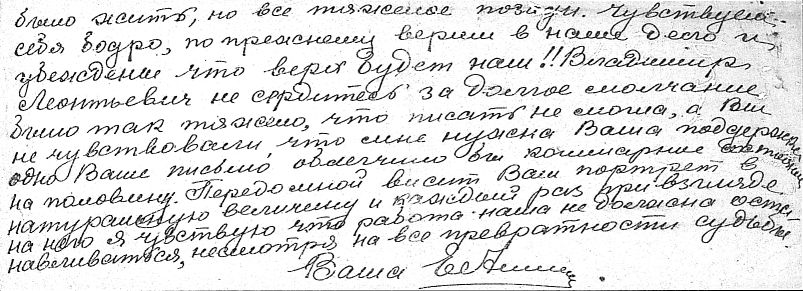 было жить, но все тяжелое позади. Чувствуем
себя бодро, по прежнему верим в наше дело и
убеждены что верх будет наш!! Владимир
Леонтьевич не сердитесь за долгое молчание
было так тяжело, что писать не могла, а Вы
не чувствовали, что мне нужна Ваша поддержка
одно Ваше письмо облегчило бы кошмарное состояние
на половину. Передо мной висит Ваш портрет в
натуральную величину и каждый раз при взгляде
на него я чувствую что работа наша не должна оста
навливаться, несмотря на все превратности судьбы.
Ваша